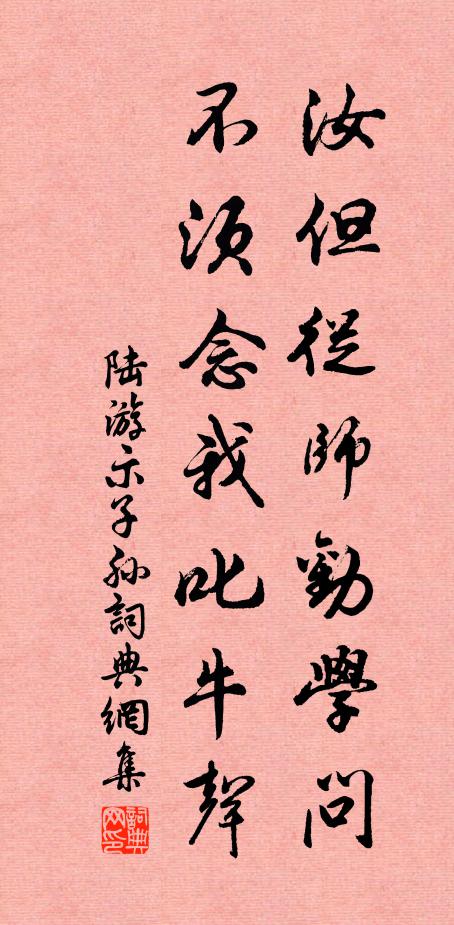 汝但從師勤學問
不須念我叱牛聲
陸游示子孫詞典網集
詞典
网印